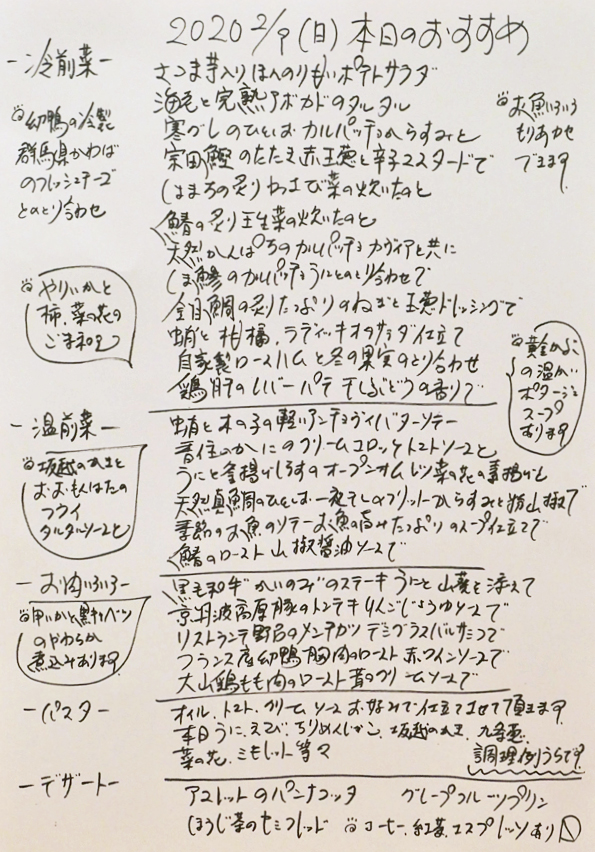 2020 2/9 (日) 本日のおすすめ
ー冷前菜ー
さつま芋入り ほんのり甘いポテトサラダ
海老と完熟アボカドのタルタル
寒ぶしのひと塩カルパッチョからすみと
宗田鰹のたたき 赤玉葱と辛子マスタードで
はまちの炙り わさび菜の炊いたのと
鰆の炙り 壬生菜の炊いたのと
天然かんぱちのカルパッチョ カヴィアと共に
しま鯵のカルパッチョ うにとのとり合わせで
金目鯛の炙り たっぷりのねぎと玉葱ドレッシングで
蛸と柑橘、ラディッキオのサラダ仕立て
自家製ロースハムと冬の果実のとり合わせ
鶏肝のレバーパテ 干しぶどうの香りで
幼鴨の冷製
群馬県かわば
のフレッシュチーズ
とのとり合わせ
やりいかと
柿、菜の花の
ごま和え
お魚いろいろ
もりあわせ
できます
黄金かぶ
の温かい
ポタージュ
スープ
あります
ー温前菜ー
蛸と木の子の軽いアンチョヴィバターソテー
香住のかにのクリームコロッケ トマトソースと
うにと釜揚げしらすのオープンオムレツ 菜の花の素揚げと
天然真鯛のひと塩一夜干しのフリット からすみと粉山椒で
季節のお魚のソテー お魚の旨みたっぷりのスープ仕立てで
鰆のロースト 山椒醤油ソースで
坂越のかきと
おおもんはたの
フライ
タルタルソースと
ーお肉いろいろー
黒毛和牛かいのみのステーキ うにと山葵を添えて
京丹波高原豚のトンテキ りんごじょうゆソースで
リストランテ野呂のメンチカツ デミグラスバルサミコで
フランス産幼鴨胸肉のロースト 赤ワインソースで
大山鶏もも肉のロースト 茸のクリームソースで
甲いかと黒キャベツ
のやわらか
煮込みあります
ーパスター
オイル、トマト、クリームソース お好みで仕立てさせて頂きます
本日うに、えび、ちりめんじゃこ、坂越のかき、九条葱、
菜の花、ミモレット等々
調理例うらです
ーデザートー
アマレットのパンナコッタ　グレープフルーツプリン
ほうじ茶のセミフレッド　コーヒー、紅茶、エスプレッソあり